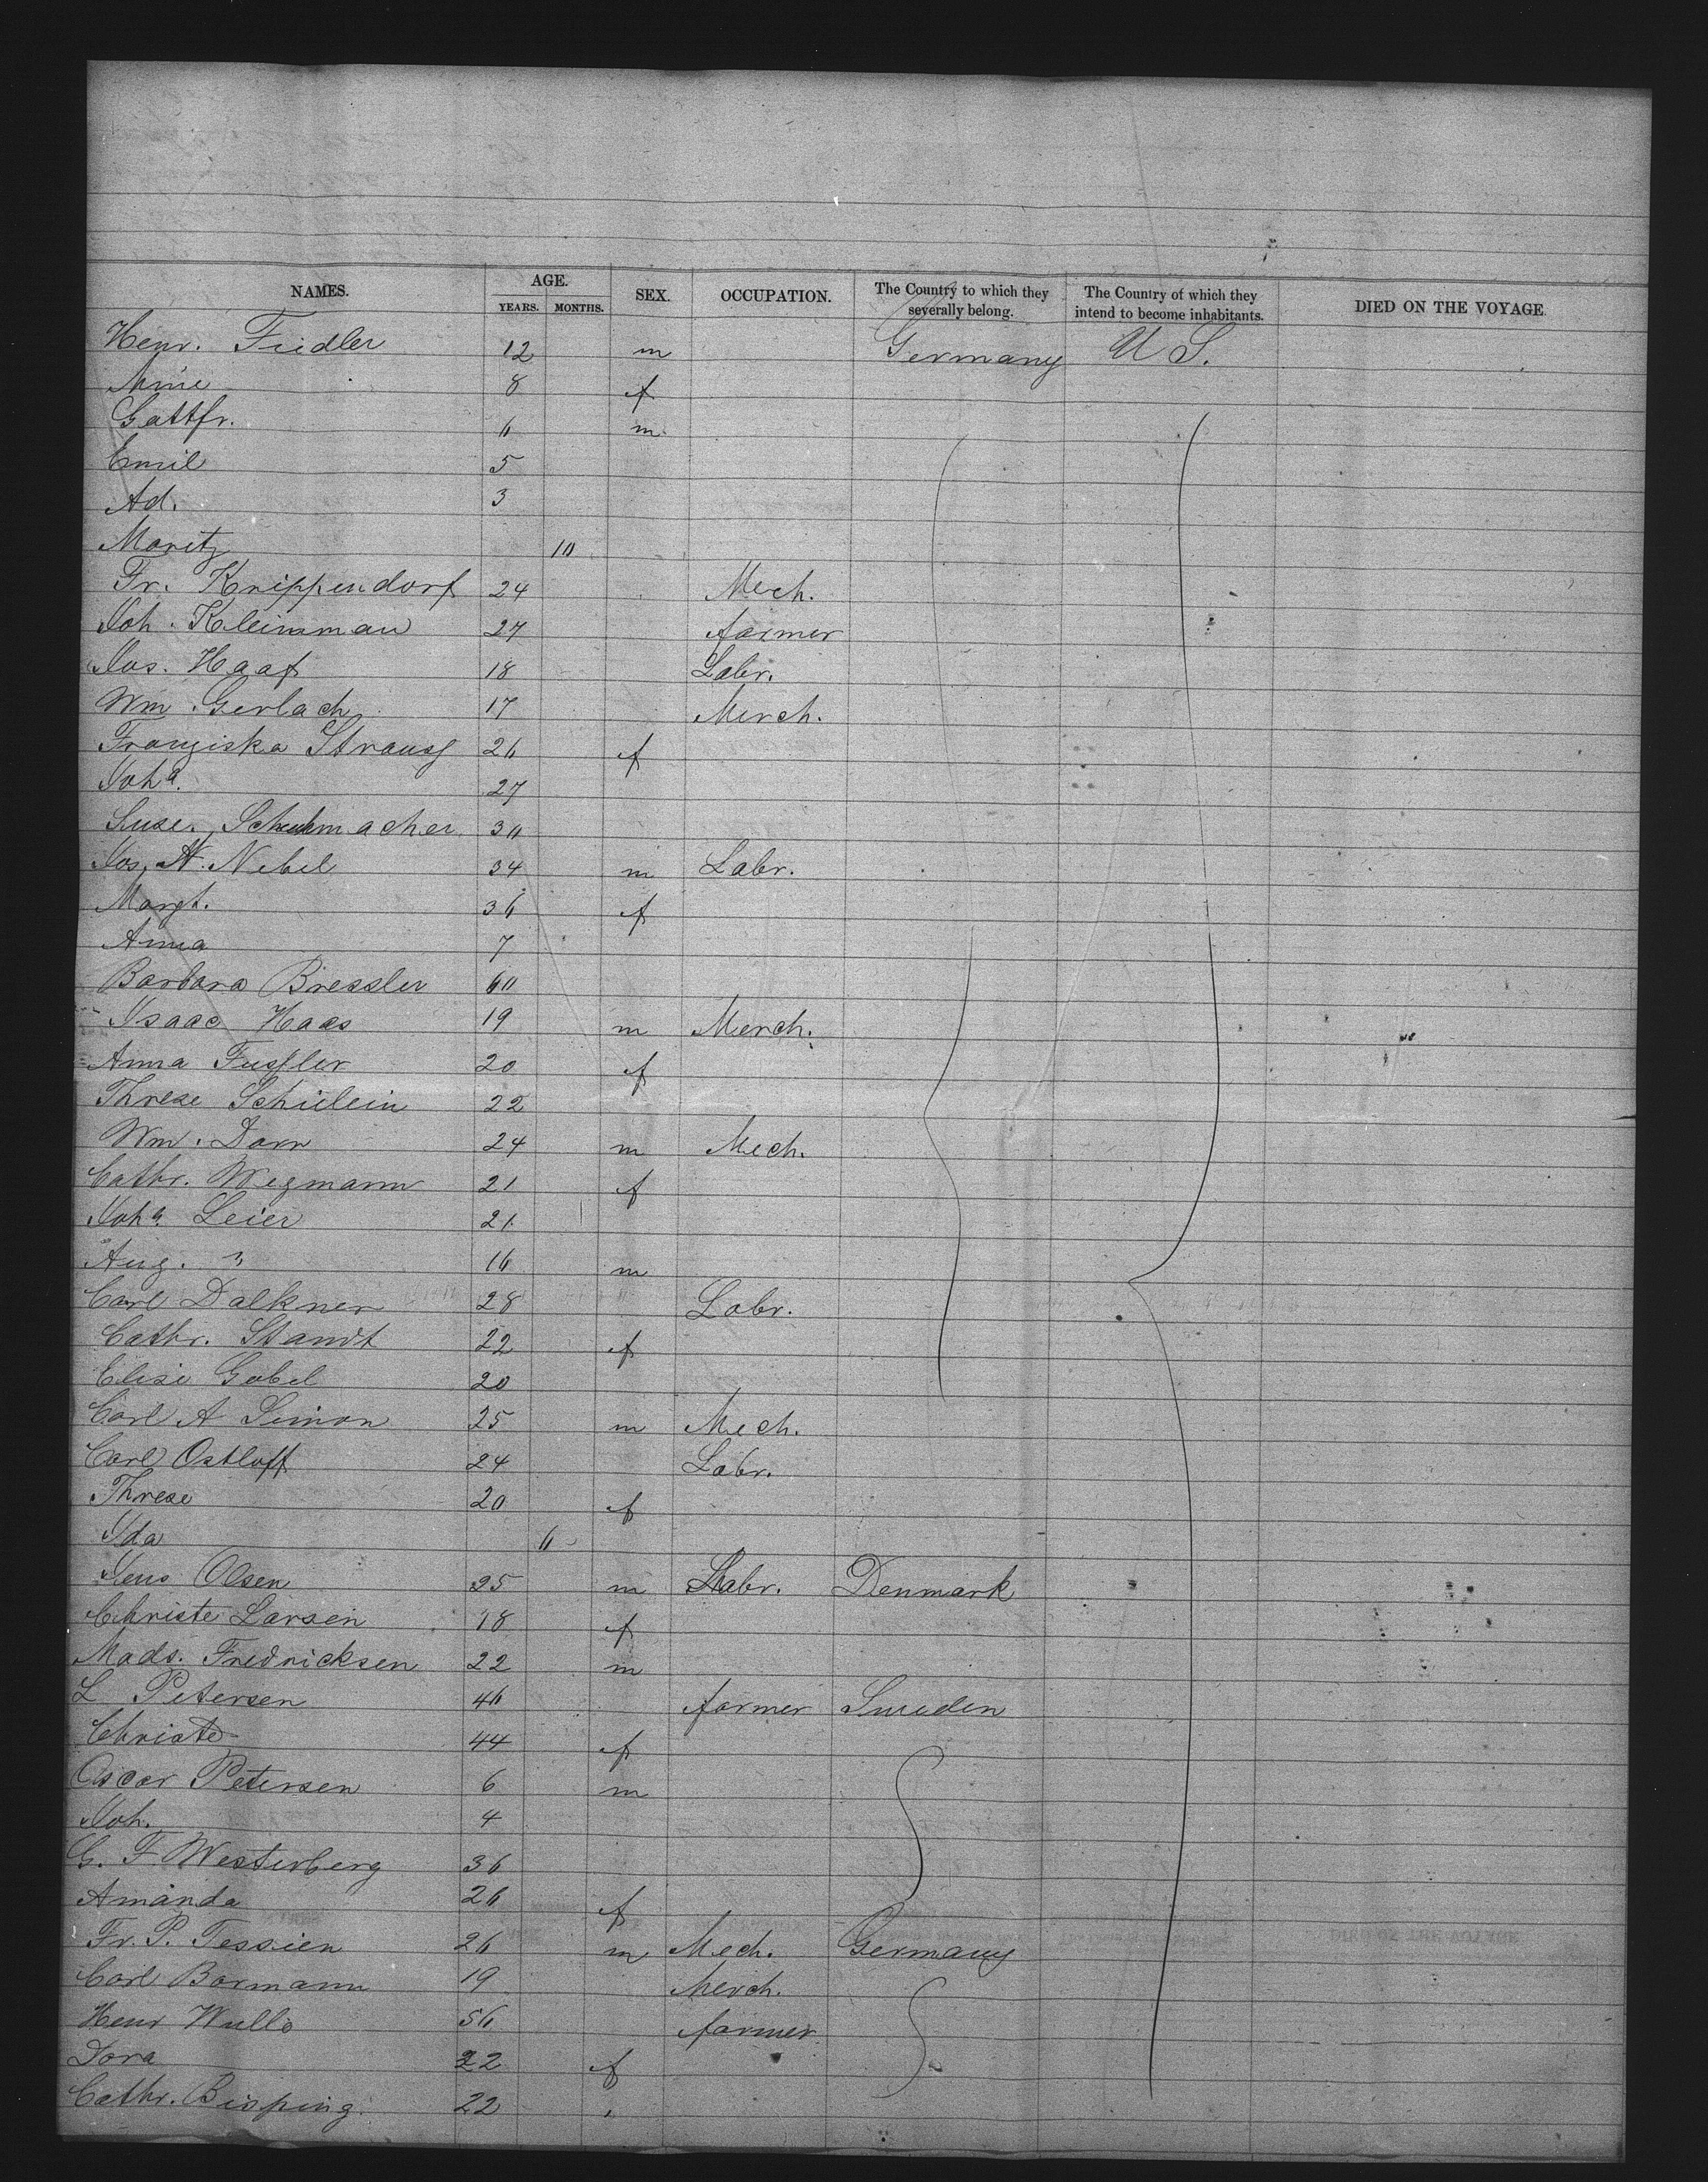 NAMES. AGE. YEARS. MONTHS. SEX. OCCUPATION. The Country to which they severally belong. The Country of which they intend to become inhabitants. DIED ON THE VOYAGE.
Henr. Fiedler 12 m Germany U S.
Mine 8 f
Gottfr. 6 m
Emil 5
Ad. 3
Moritz 10
Fr. Knippendorf 24 Mech.
Joh. Kleinman 27 farmer
Jos. Haaf 18 Labr.
Wm. Gerlach 17 Merch.
Franziska Strauss 26 f
Joha. 27
Suse. Schuhmacher 30
Jos. N. Nebel 34 m Labr.
Margt. 36 f
Anna 7
Barbara Bressler 60
Isaac Haas 19 m Merch.
Anna Fussler 20 f
Threse Schülein 22
Wm. Dorn 24 m Mech.
Cathr. Wegmann 21 f
Joha. Leier 21
Aug. " 16 m
Carl Dalkner 28 Labr.
Cathr. Standt 22 f
Elise Gobel 20
Carl A Simon 25 m Mech.
Carl Ostloff 24 Labr.
Threse 20 f
Ida 6
Jens Olsen 25 m Labr. Denmark
Christe Larsen 18 f
Mads. Fredricksen 22 m
L Petersen 46 farmer Sweden
Christe 44 f
Oscar Petersen 6 m
Joh. 4
G. F Westerberg 36
Amanda 26 f
Fr. P. Tessien 26 m Mech. Germany
Carl Bormann 19 Merch.
Henr Wulls 56 farmer
Dora 22 f
Cathr. Bisping. 22 "